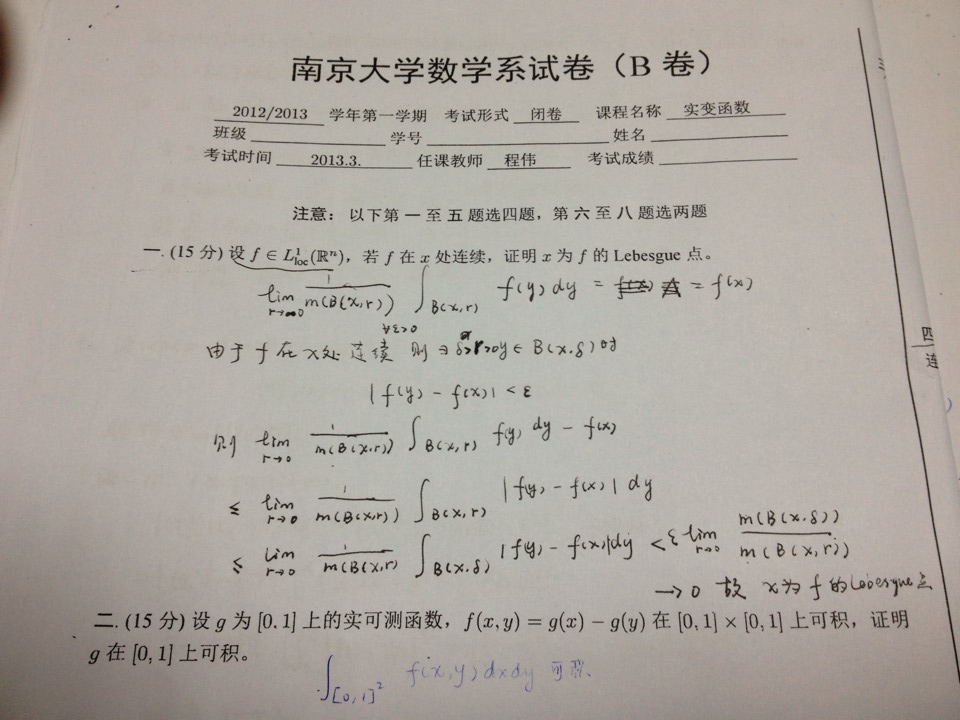 南京大学数学系试卷（B 卷）
2012/2013 学年第一学期 考试形式 闭卷 课程名称 实变函数
班级 学号 姓名
考试时间 2013.3. 任课教师 程伟 考试成绩
注意：以下第一至五题选四题，第六至八题选两题
一. (15 分) 设 f ∈ L¹loc(ℝⁿ)，若 f 在 x 处连续，证明 x 为 f 的 Lebesgue 点。
lim r→0 1/m(B(x,r)) ∫B(x,r) f(y) dy = = f(x)
∀ε>0
由于 f 在 x处 连续 则 ∃ δ>r>0 y ∈ B(x.δ) 时
|f(y) - f(x)| < ε
则 lim r→0 1/m(B(x,r)) ∫B(x,r) f(y) dy - f(x)
≤ lim r→0 1/m(B(x,r)) ∫B(x,r) |f(y) - f(x)| dy
≤ lim r→0 1/m(B(x,r) ∫B(x.δ) |f(y) - f(x)|dy < ε lim r→0 m(B(x.δ))/m(B(x,r))
→0 故 x为 f 的Lebesgue点
二. (15 分) 设 g 为 [0.1] 上的实可测函数，f(x,y) = g(x) − g(y) 在 [0,1] × [0,1] 上可积，证明
g 在 [0,1] 上可积。
∫[0,1]² f(x,y) dxdy 可积.
三
四
连